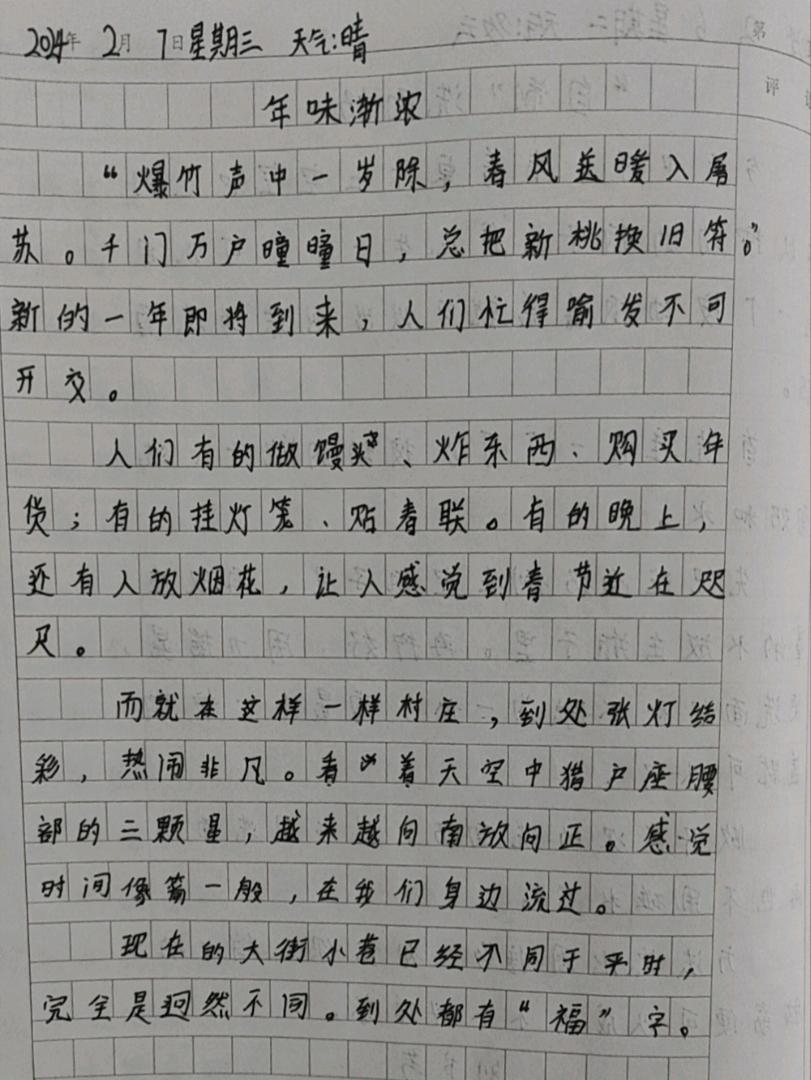 2024年 2月 7日星期三 天气:晴
年味渐浓
“爆竹声中一岁除，春风送暖入屠
苏。千门万户瞳瞳日，总把新桃换旧符。”
新的一年即将到来，人们忙得喻发不可
开交。
人们有的做馒头、炸东西、购买年
货；有的挂灯笼、贴春联。有的晚上，
还有人放烟花，让人感觉到春节近在咫
尺。
而就在这样一样村庄，到处张灯结
彩，热闹非凡。看着天空中猎户座腰
部的三颗星，越来越向南放向正。感觉
时间像箭一般，在我们身边流过。
现在的大街小巷已经不同于平时，
完全是迥然不同。到处都有“福”字。
第
评